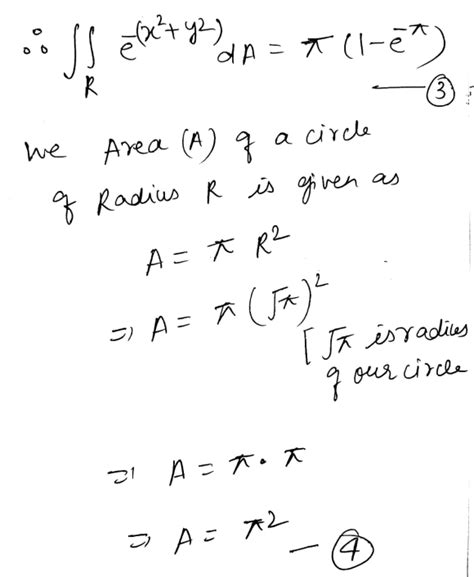 ∴ ∬_R e^{-(x²+y²)} dA = π (1-e^{-π})
— ③
We Area (A) of a circle
of Radius R is given as
A = π R²
⇒ A = π (√π)²
[√π is radius
of our circle
⇒ A = π · π
⇒ A = π² — ④